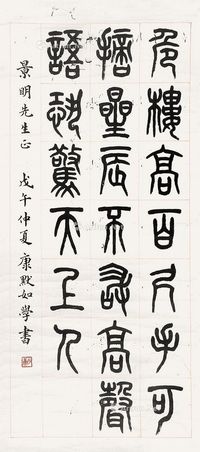 危樓高百尺手可
摘星辰不敢高聲
語恐驚天上人
景明先生正 戊午仲夏 康默如學書